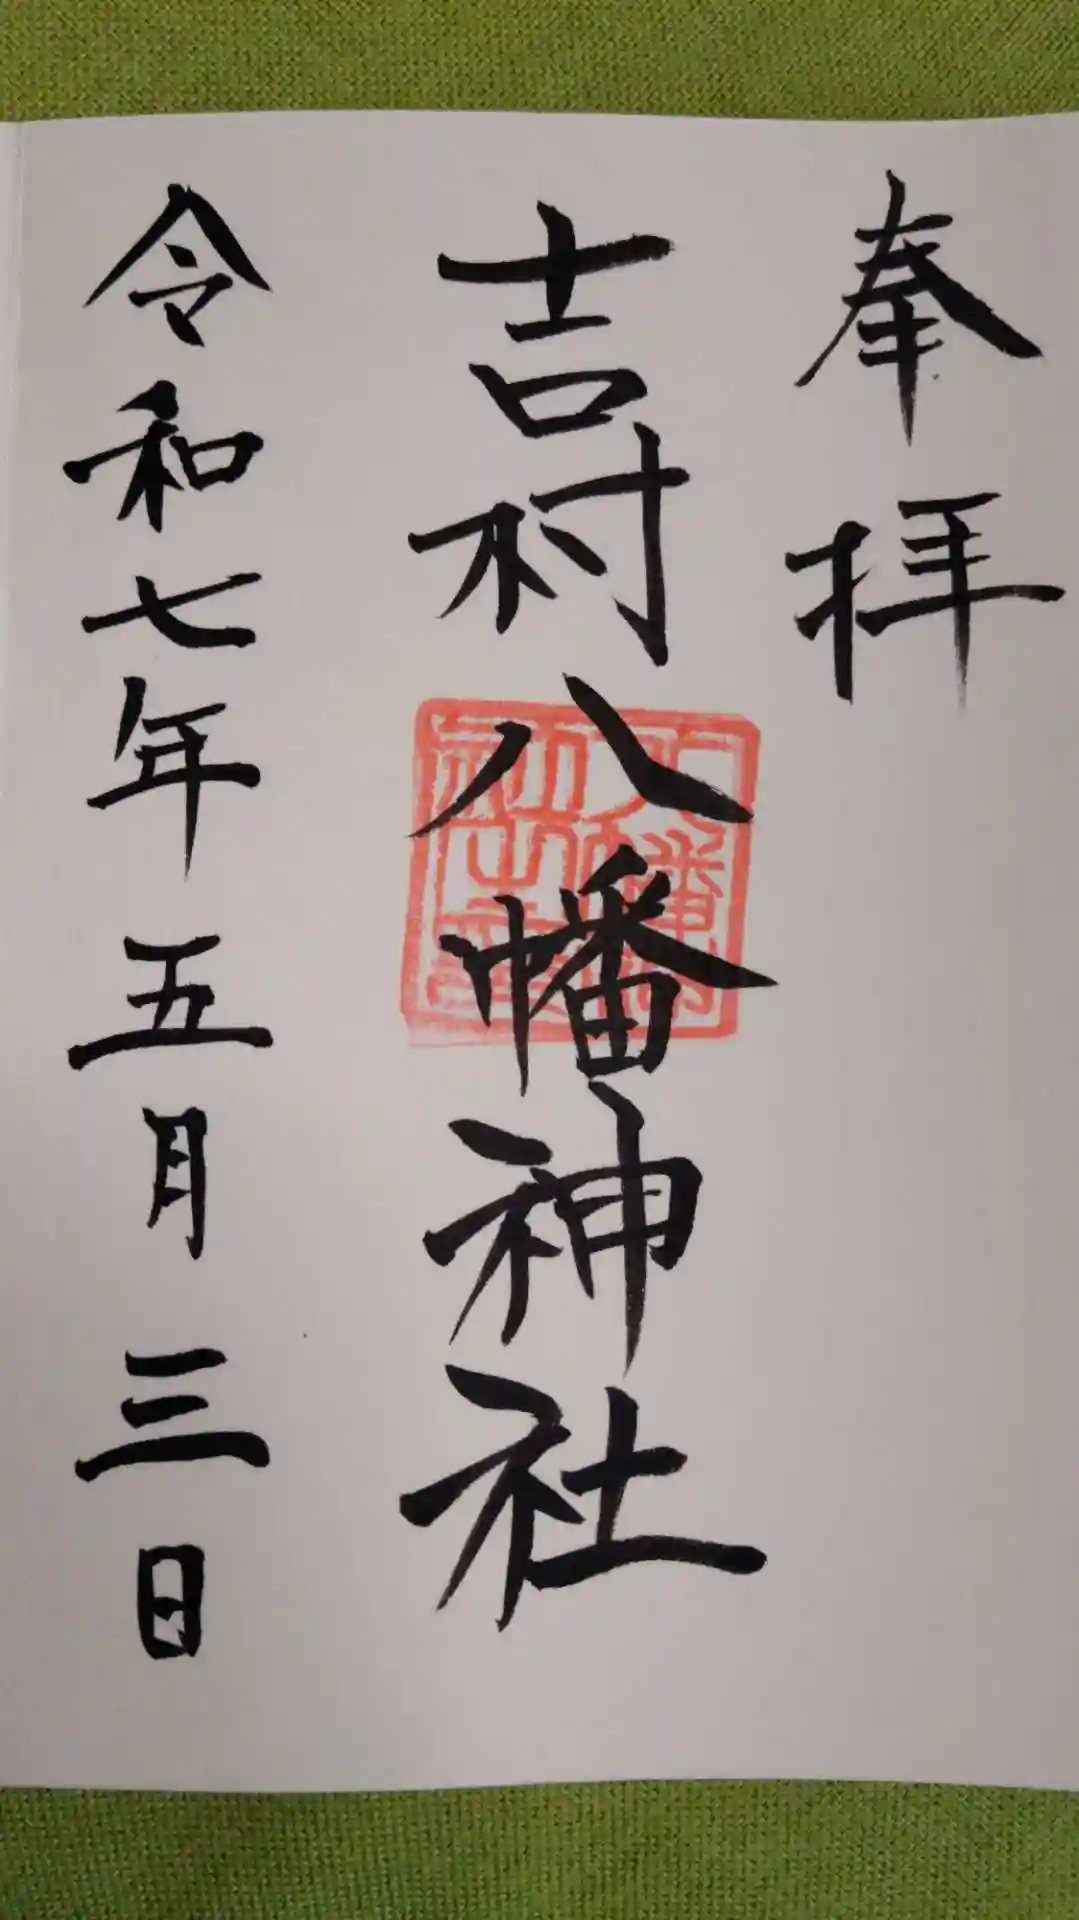 奉拝
吉村八幡神社
令和七年五月三日